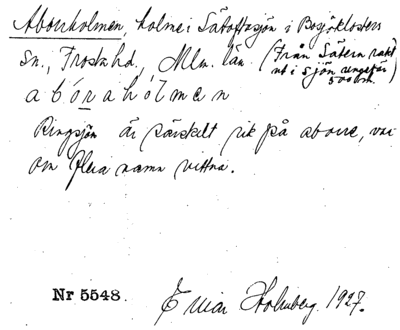 Aborrholmen, holme i Sätoftasjön i Bosjöklosters
sn., Frosta hd., Mlm. län. (Från Sätern rakt
ut i sjön ungefär
500 m.)
a b o r a h o l m e n
Ringsjön är särskilt rik på aborre, var
om flera namn vittna.
Nr 5548. Einar Holmberg. 1927.